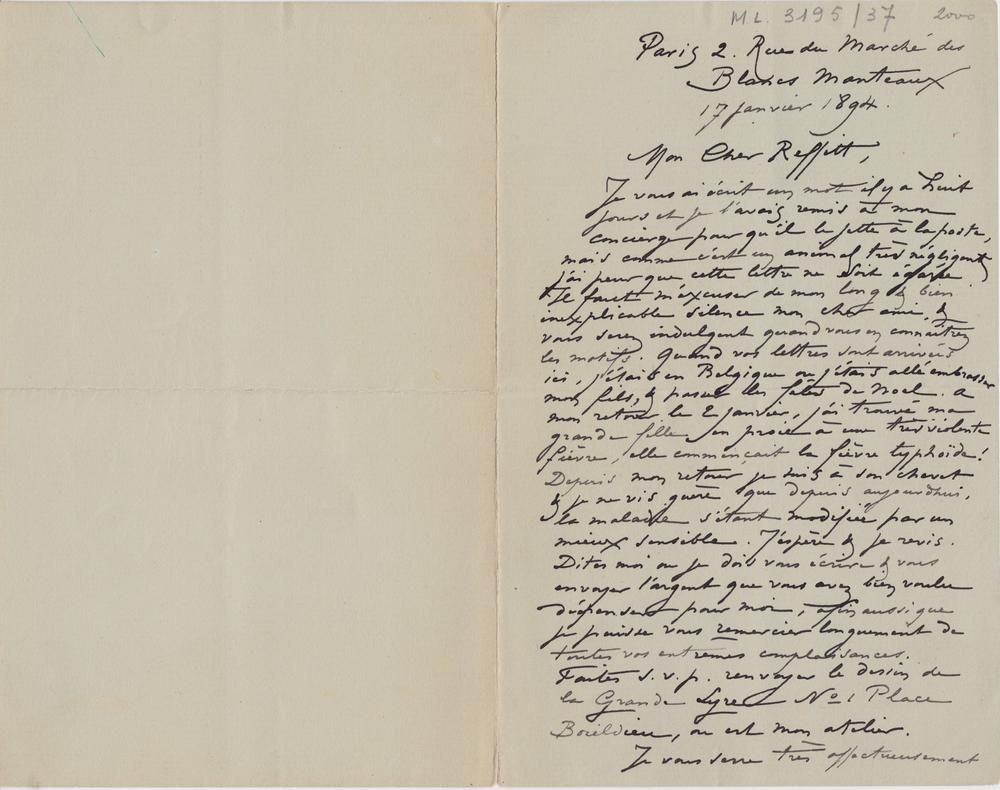 ML. 3195/37 2000
Paris 2. Rue du Marché des
Blancs Manteaux
17 janvier 1894.
Mon Cher Reffitt,
Je vous ai écrit un mot il y a huit
jours et je l'avais remis à mon
concierge pour qu'il le jette à la poste,
mais comme c'est un animal très négligent
j'ai peur que cette lettre ne soit égarée
Il faut m'excuser de mon long & bien
inexplicable silence mon cher ami, &
vous serez indulgent quand vous en connaîtrez
les motifs. Quand vos lettres sont arrivées
ici, j'étais en Belgique ou j'étais allé embrasser
mon fils, & passer les fêtes de Noel. A
mon retour le 2 janvier, j'ai trouvé ma
grande fille en proie à une très violente
fièvre, elle commençait la fièvre typhoïde!
Depuis mon retour je suis à son chevet
& je ne vis guère que depuis aujourdhui,
la maladie s'étant modifiée par un
mieux sensible. J'espère & je revis.
Dites moi ou je dois vous écrire & vous
envoyer l'argent que vous avez bien voulu
dépenser pour moi, afin aussi que
je puisse vous remercier longuement de
toutes vos extrêmes complaisances.
Faites s.v.p. renvoyer le dessin de
la Grande Lyre No 1 Place
Boieldieu, ou est mon atelier.
Je vous serre très affectueusement